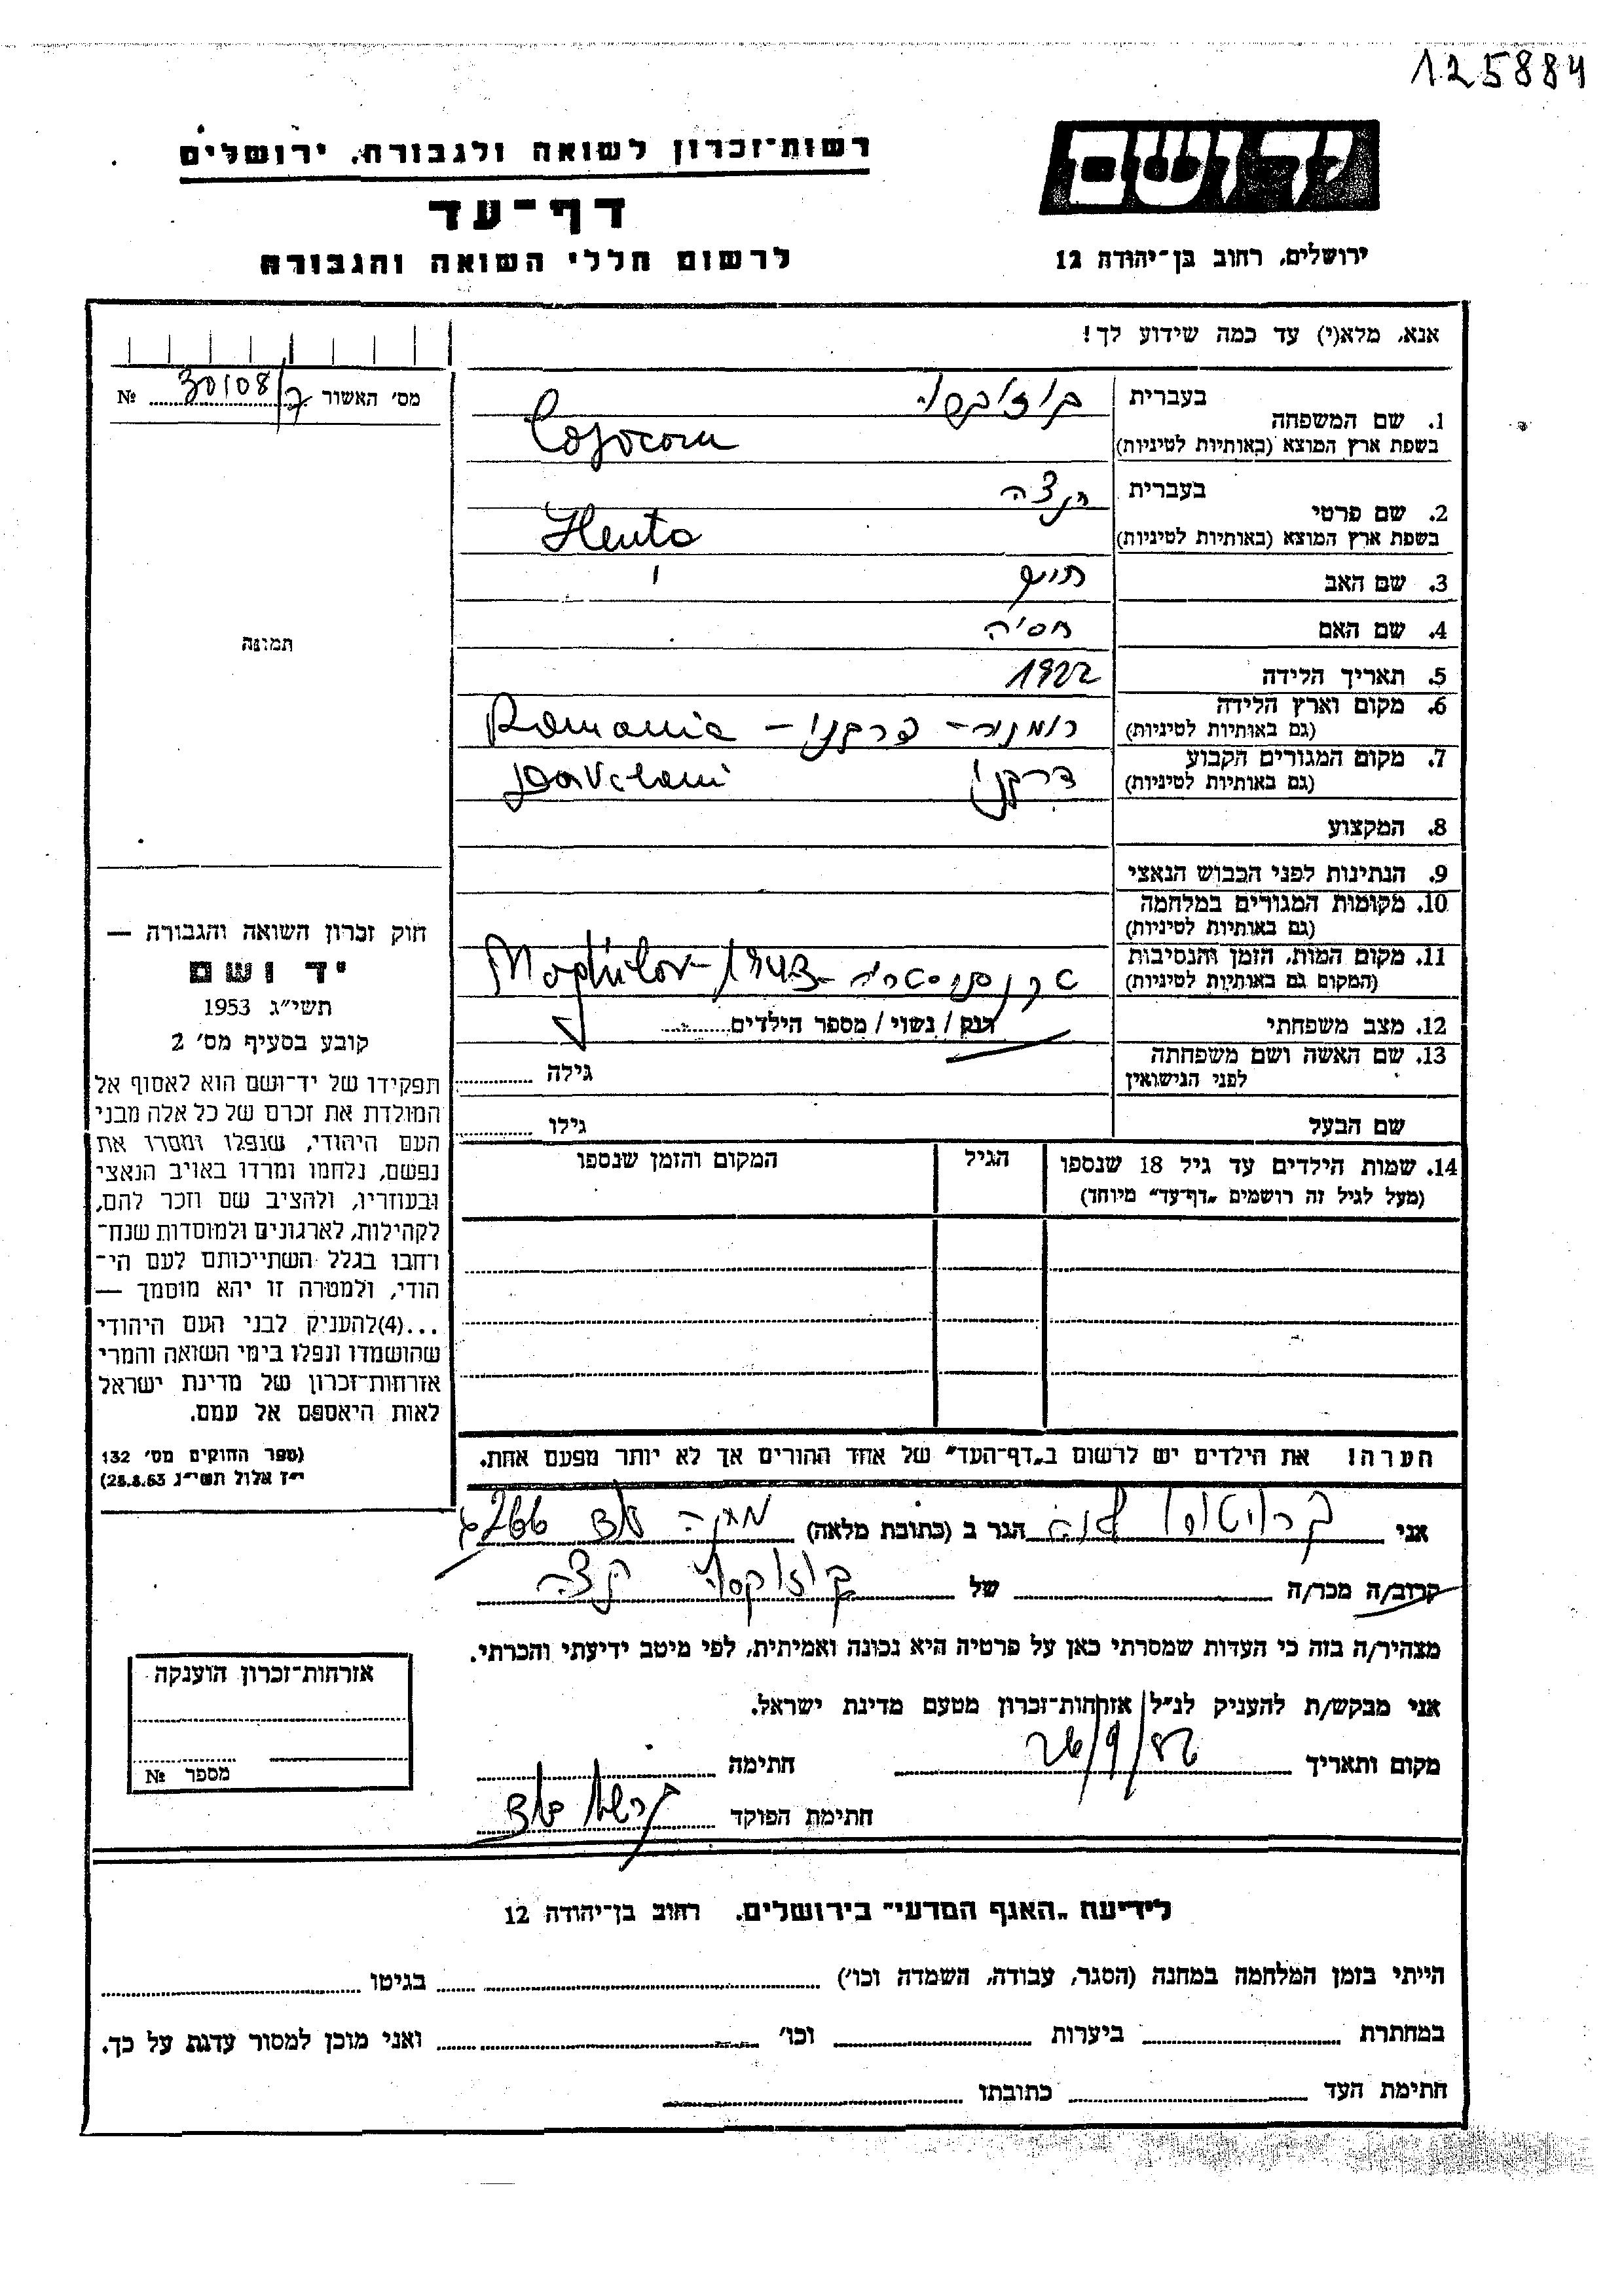 125884
יד ושם
רשות־זכרון לשואה ולגבורה, ירושלים
דף־עד
לרשום חללי השואה והגבורה
ירושלים, רחוב בן־יהודה 12
אנא, מלא(י) עד כמה שידוע לך!
מס׳ האשור 30108/ №
תמונה
חוק זכרון השואה והגבורה —
יד ושם
תשי״ג 1953
קובע בסעיף מס׳ 2
תפקידו של יד־ושם הוא לאסוף אל
המולדת את זכרם של כל אלה מבני
העם היהודי, שנפלו ומסרו את
נפשם, נלחמו ומרדו באויב הנאצי
ובעוזריו, ולהציב שם וזכר להם,
לקהילות, לארגונים ולמוסדות שנח־
רחבו בגלל השתייכותם לעם הי־
הודי, ולמטרה זו יהא מוסמך —
...(4)להעניק לבני העם היהודי
שהושמדו ונפלו בימי השואה והמרי
אזרחות־זכרון של מדינת ישראל
לאות היאספם אל עמם.
(ספר החוקים מס׳ 132
י״ז אלול תשי״ג 28.8.53)
בעברית
1. שם המשפחה
בשפת ארץ המוצא (באותיות לטיניות) Cojocaru
בעברית הנצה
2. שם פרטי
בשפת ארץ המוצא (באותיות לטיניות) Henta
3. שם האב
4. שם האם חסיה
5. תאריך הלידה 1922
6. מקום וארץ הלידה
(גם באותיות לטיניות) רומניה - דרבני - Romania
7. מקום המגורים הקבוע
(גם באותיות לטיניות) דרבני Darabani
8. המקצוע
9. הנתינות לפני הכבוש הנאצי
10. מקומות המגורים במלחמה
(גם באותיות לטיניות)
11. מקום המות, הזמן והנסיבות
(המקום גם באותיות לטיניות) טרנסניסטריה - 1943 - Moghilov
12. מצב משפחתי רוק / נשוי / מספר הילדים
13. שם האשה ושם משפחתה
לפני הנישואין גילה
שם הבעל גילו
14. שמות הילדים עד גיל 18 שנספו הגיל המקום והזמן שנספו
(מעל לגיל זה רושמים „דף־עד״ מיוחד)
הערה! את הילדים יש לרשום ב„דף־העד״ של אחד ההורים אך לא יותר מפעם אחת.
אני הגר ב (כתובת מלאה) 266
קרוב/ה מכר/ה של
מצהיר/ה בזה כי העדות שמסרתי כאן על פרטיה היא נכונה ואמיתית, לפי מיטב ידיעתי והכרתי.
אני מבקש/ת להעניק לנ״ל אזרחות־זכרון מטעם מדינת ישראל.
מקום ותאריך חתימה
חתימת הפוקד
אזרחות־זכרון הוענקה
מספר №
לידיעת „האגף המדעי״ בירושלים, רחוב בן־יהודה 12
הייתי בזמן המלחמה במחנה (הסגר, עבודה, השמדה וכו׳) בגיטו
במחתרת ביערות וכו׳ ואני מוכן למסור עדות על כך.
חתימת העד כתובתו